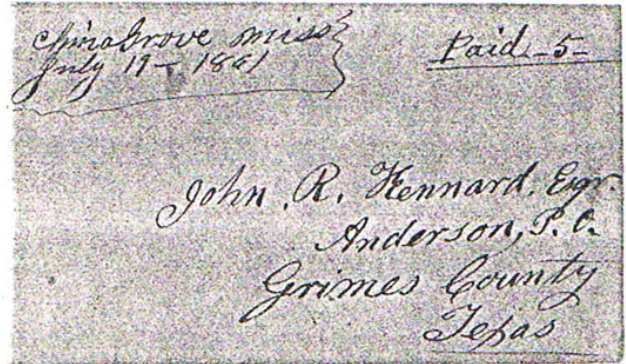 China Grove Miss
July 19 - 1861
Paid - 5 -
John. R. Kennard, Esqr.
Anderson, P. O.
Grimes County
Texas